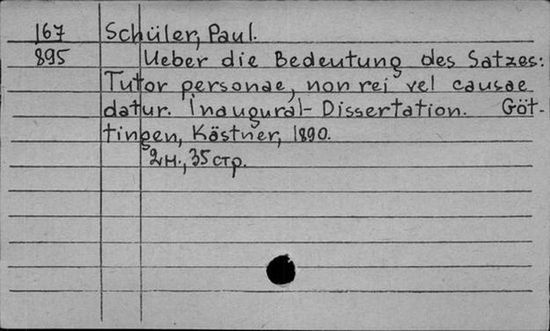 167 Schüler, Paul.
895 Ueber die Bedeutung des Satzes:
Tutor personae, non rei vel causae
datur. Inaugural-Dissertation. Göt-
tingen, Kästner, 1890.
2н., 35 стр.